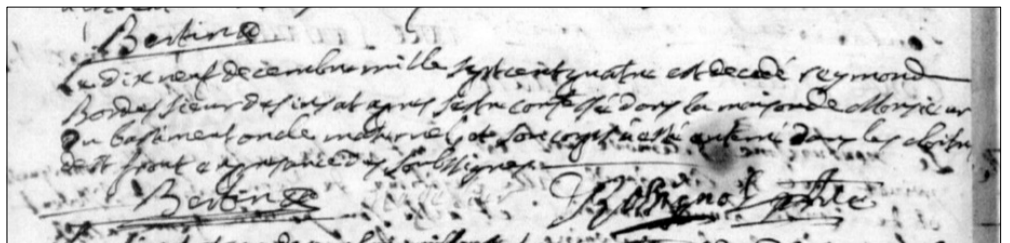 Bertin
Le dix neuf decembre mille sept cent quatre est decedé reymond
Bordes sieur de apres s'estre confessé dans la maison de Monsieur
Du bastiment oncle maternel et son corps a esté enterré dans les cloitre
de St front en presence des soubsignes
Bertin Rossignol ptre